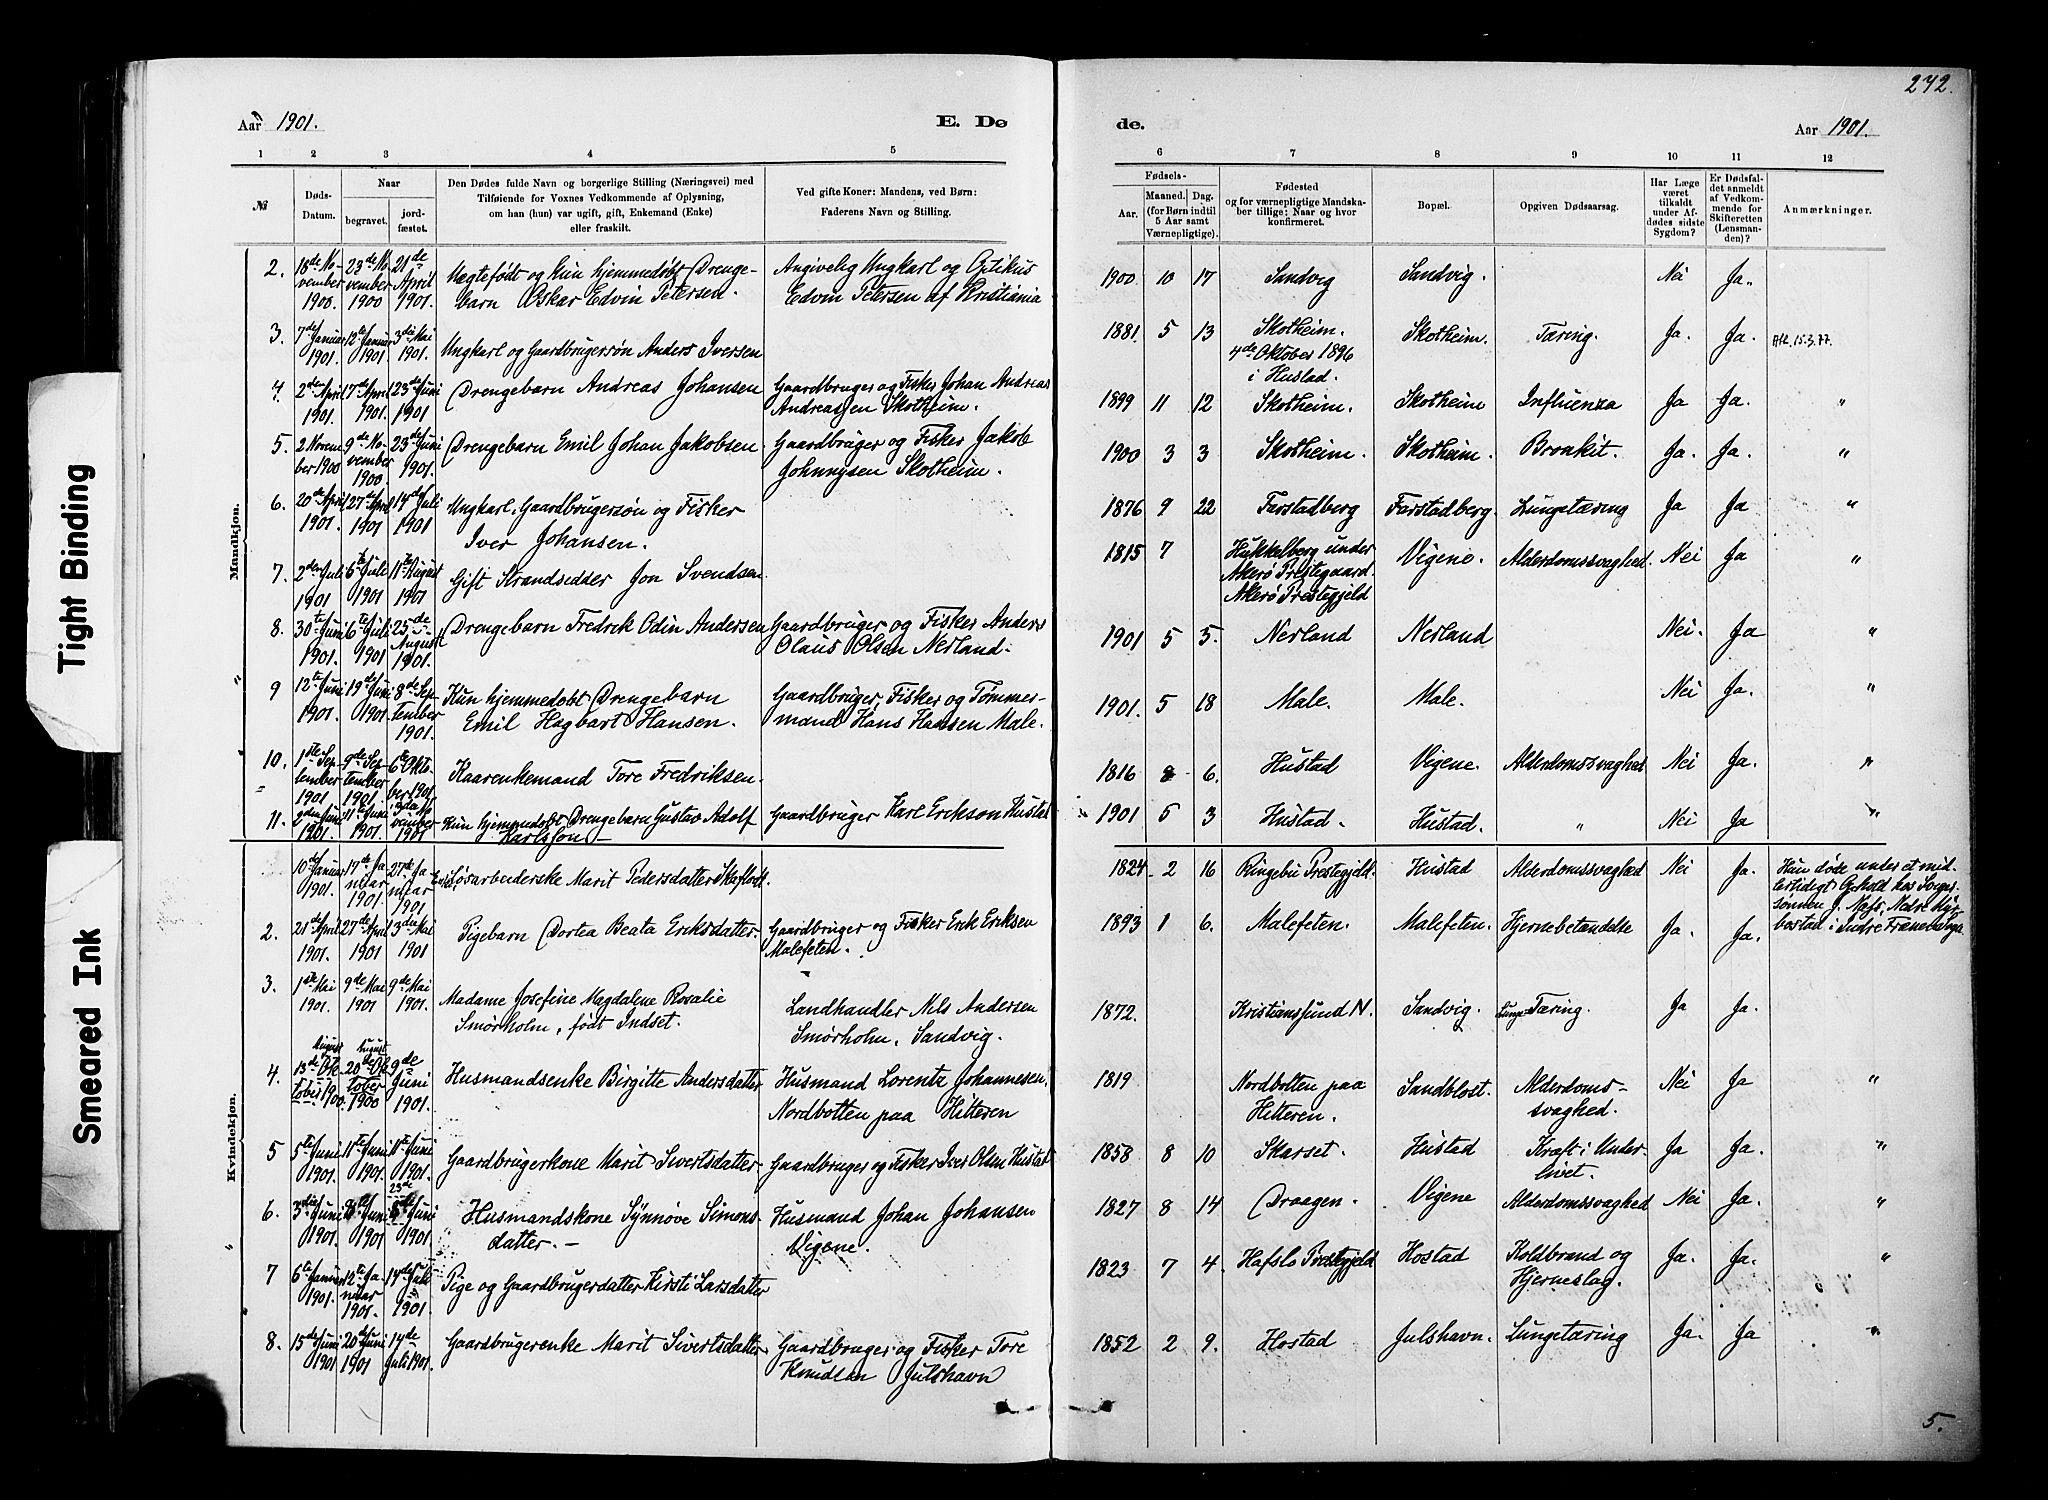 242.
Aar 1901.
E. Dø
de.
Aar 1901.
1 2 3 4 5 6 7 8 9 10 11 12
№
Døds-Datum.
Naar
begravet.
jord-fæstet.
Den Dødes fulde Navn og borgerlige Stilling (Næringsvei) med
Tilføiende for Voxnes Vedkommende af Oplysning,
om han (hun) var ugift, gift, Enkemand (Enke)
eller fraskilt.
Ved gifte Koner: Mandens, ved Børn:
Faderens Navn og Stilling.
Fødsels-
Aar.
Maaned. Dag.
(for Børn indtil
5 Aar samt
Værnepligtige).
Fødested
og for værnepligtige Mandska-
ber tillige: Naar og hvor
konfirmeret.
Bopæl.
Opgiven Dødsaarsag.
Har Læge
været
tilkaldt
under Af-
dødes sidste
Sygdom?
Er Dødsfal-
det anmeldt
af Vedkom-
mende for
Skifteretten
(Lensman-
den)?
Anmærkninger.
Mandkjøn.
2. 18de November 1900. 23de November 1900 21de April 1901. Uegtefødt og kun hjemmedøbt Drenge-
barn Oskar Edvin Petersen. Angivelig Ungkarl og Optikus
Edvin Petersen af Kristiania 1900. 10 17 Sandvig Sandvig. Nei Ja.
3. 7de Januar 1901. 12te Januar 1901 3die Mai 1901. Ungkarl og Gaardbrugersøn Anders Iversen 1881. 5 13 Skotheim.
4de Oktober 1896
i Hustad. Skotheim. Tæring. Ja. Ja. 15.3.77.
4. 2den April 1901. 17de April 1901. 23de Juni 1901 Drengebarn Andreas Johansen Gaardbruger og Fisker Johan Andreas
Andreassen Skotheim. 1899 11 12 Skotheim. Skotheim Influenza Ja Ja. "
5. 2 November 1900 9de November 1900. 23de Juni 1901. Drengebarn Emil Johan Jakobsen Gaardbruger og Fisker Jakob
Johnnysen Skotheim. 1900 3 3 Skotheim. Skotheim. Bronkit. Ja. Ja. "
6. 20de April 1901. 27de April 1901 14de Juli 1901 Ungkarl, Gaardbrugersøn og Fisker
Iver Johansen. 1876 9 22 Farstadberg Farstadberg. Lungetæring Ja Ja "
7. 2den Juli 1901 6te Juli 1901 11te August 1901 Gift Strandsidder Jon Svendsen 1815 7 Hukkelberg under
Akerø Prestegaard.
Akerø Prestegjeld Vigene. Alderdomssvaghed. Nei Ja "
8. 30te Juni 1901. 6te Juli 1901 25de August 1901. Drengebarn Fredrik Odin Andersen Gaardbruger og Fisker Anders
Olaus Olsen Nerland. 1901 5 5. Nerland Nerland Nei. Ja "
9 12te Juni 1901. 19de Juni 1901. 8de September 1901. Kun hjemmedøbt Drengebarn
Emil Hagbart Hansen. Gaardbruger, Fisker og Tømmer-
mand Hans Hansen Male. 1901. 5 18 Male. Male. Nei Ja. "
10. 1ste September 1901 9de September 1901. 6te Oktober 1901 Kaarenkemand Tore Fredriksen. 1816 8 6. Hustad Vigene. Alderdomssvaghed Nei Ja. "
11. 2den Juni 1901. 11te Juni 1901. November 1901 Kun hjemmedøbt Drengebarn Gustav Adolf
Karlsson Gaardbruger Karl Erikson Hustad 1901 5 3 Hustad. Hustad. " Nei Ja "
Kvindekjøn.
10de Januar 1901. 17de Januar 1901. 27de Januar 1901 Løsarbeiderske Marit Pedersdatter 1824 2 16 Ringebu Prestegjeld. Hustad Alderdomssvaghed Nei Ja. Hun døde under et mid-
lertidigt Ophold hos
sønnen Nedre
i Indre
2. 21de April 1901. 27de April 1901 3die Mai 1901 Pigebarn Dortea Beata Eriksdatter. Gaardbruger og Fisker Erik Eriksen
Malefeten. 1893 1 6. Malefeten. Malefeten. Hjernebetændelse Ja. Ja.
3. 1ste Mai 1901. 9de Mai 1901 9de Mai 1901. Madame Josefine Magdalene Rosalie
Smørholm, født Indset. Landhandler Nils Andersen
Smørholm, Sandvig. 1872. Kristianssund N. Sandvig. Lunge-Tæring. Ja Ja.
4. August 13de Oktober 1900. August 20de Oktober 1900 9de Juni 1901. Husmandsenke Birgitte Andersdatter Husmand Lorentz Johannesen,
Nordbotten paa Hitteren 1819 Nordbotten paa
Hitteren. Sandblost. Alderdoms-
svaghed. Nei Ja "
5 5te Juni 1901. 11te Juni 1901. 11te Juni 1901. Gaardbrugerkone Marit Sivertsdatter Gaardbruger og Fisker Iver Olsen Hustad 1858 8 10 Skarset. Hustad Kræft i Under-
livet. Ja Ja. "
6. 3die Juni 1901. 8de Juni 1901 23de Juni 1901. Husmandskone Synnøve Simons-
datter. Husmand Johan Johansen
Vigene. 1827 8 14 Draagen. Vigene Alderdomssvaghed Nei Ja. "
7 6te Januar 1901. 12te Januar 1901. 14de Juli 1901. Pige og Gaardbrugerdatter Kirsti Larsdatter 1823 7 4. Hafslo Prestegjeld Hostad Koldbrand og
Hjerneslag. Ja. Ja. "
8. 15de Juni 1901 20de Juni 1901 14de Juli 1901. Gaardbrugerenke Marit Sivertsdatter Gaardbruger og Fisker Tore
Knudsen Julshavn 1852 2 9. Hostad Julshavn. Lungetæring Ja. Ja "
5.
Tight Binding
Smeared Ink